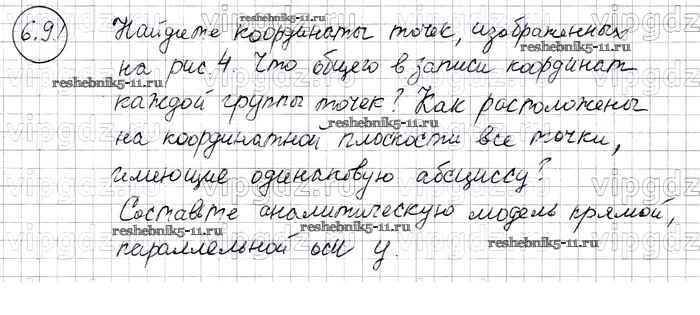 6.9. Найдите координаты точек, изображенных
на рис. 4. Что общего в записи координат
каждой группы точек? Как расположены
на координатной плоскости все точки,
имеющие одинаковую абсциссу?
Составьте аналитическую модель прямой,
параллельной оси y.
reshebnik5-11.ru
reshebnik5-11.ru
reshebnik5-11.ru
reshebnik5-11.ru
reshebnik5-11.ru
reshebnik5-11.ru